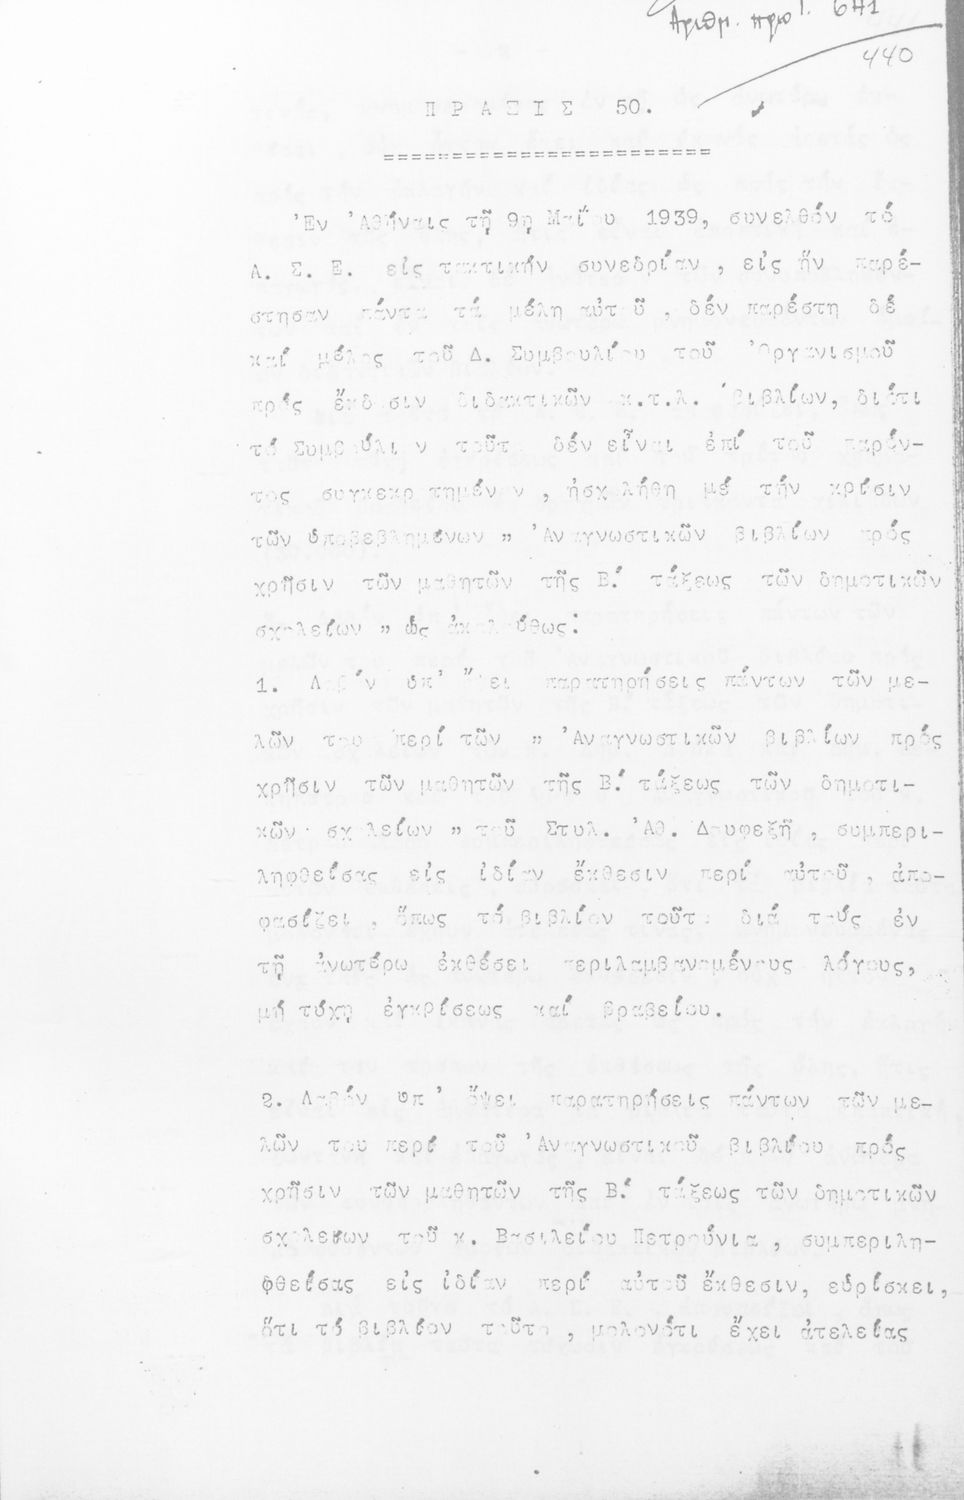 Ἀριθμ. πρωτ. 641
440
ΠΡΑΞΙΣ 50.
Ἐν Ἀθήναις τῇ 9ῃ Μαΐου 1939, συνελθόν τό
Α. Σ. Ε. εἰς τακτικήν συνεδρίαν, εἰς ἥν παρέ-
στησαν πάντα τά μέλη αὐτοῦ, δέν παρέστη δέ
καί μέλος τοῦ Δ. Συμβουλίου τοῦ Ὀργανισμοῦ
πρός ἔκδοσιν διδακτικῶν κ.τ.λ. βιβλίων, διότι
τό Συμβούλιον τοῦτο δέν εἶναι ἐπί τοῦ παρόν-
τος συγκεκροτημένον, ἠσχολήθη μέ τήν κρίσιν
τῶν ὑποβεβλημένων " Ἀναγνωστικῶν βιβλίων πρός
χρῆσιν τῶν μαθητῶν τῆς Β΄ τάξεως τῶν δημοτικῶν
σχολείων " ὡς ἀκολούθως:
1. Λαβόν ὑπ' ὄψει παρατηρήσεις πάντων τῶν με-
λῶν του περί τῶν " Ἀναγνωστικῶν βιβλίων πρός
χρῆσιν τῶν μαθητῶν τῆς Β΄ τάξεως τῶν δημοτι-
κῶν σχολείων " τοῦ Στυλ. Ἀθ. Δουφεξῆ, συμπερι-
ληφθείσας εἰς ἰδίαν ἔκθεσιν περί αὐτοῦ, ἀπο-
φασίζει, ὅπως τό βιβλίον τοῦτο διά τούς ἐν
τῇ ἀνωτέρω ἐκθέσει περιλαμβανομένους λόγους,
μή τύχῃ ἐγκρίσεως καί βραβείου.
2. Λαβόν ὑπ' ὄψει παρατηρήσεις πάντων τῶν με-
λῶν του περί τοῦ Ἀναγνωστικοῦ βιβλίου πρός
χρῆσιν τῶν μαθητῶν τῆς Β΄ τάξεως τῶν δημοτικῶν
σχολείων τοῦ κ. Βασιλείου Πετρούνια, συμπεριλη-
φθείσας εἰς ἰδίαν περί αὐτοῦ ἔκθεσιν, εὑρίσκει,
ὅτι τό βιβλίον τοῦτο, μολονότι ἔχει ἀτελείας